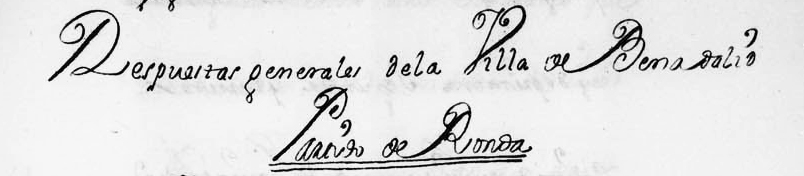 Respuestas generales dela Villa de Benadalid
Partido de Ronda